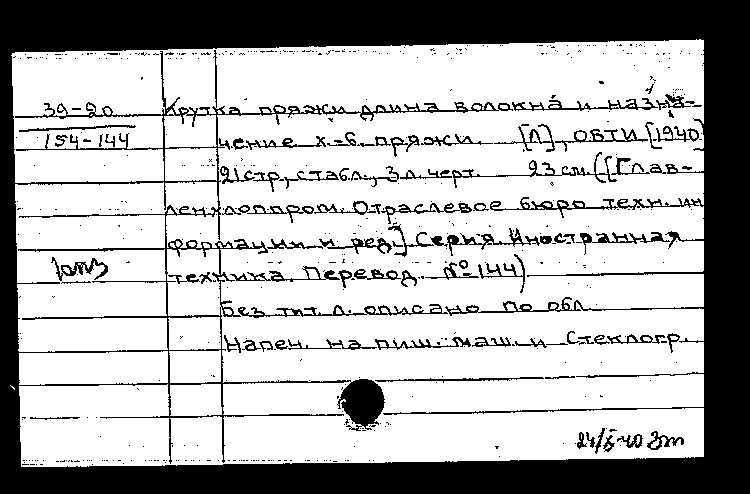 39-20
154-144
Крутка пряжи длина волокна и назна-
чение х.-б. пряжи. [Л], ОБТИ [1940]
21 стр, с табл., 3 л. черт. 23 см. ([Глав-
ленхлоппром. Отраслевое бюро техн. ин
формации и ред.] Серия. Иностранная
техника. Перевод. № 144)
Без тит. л. описано по обл.
Напеч. на пиш. маш. и стеклогр.
1 опз
24/5-40 Зт